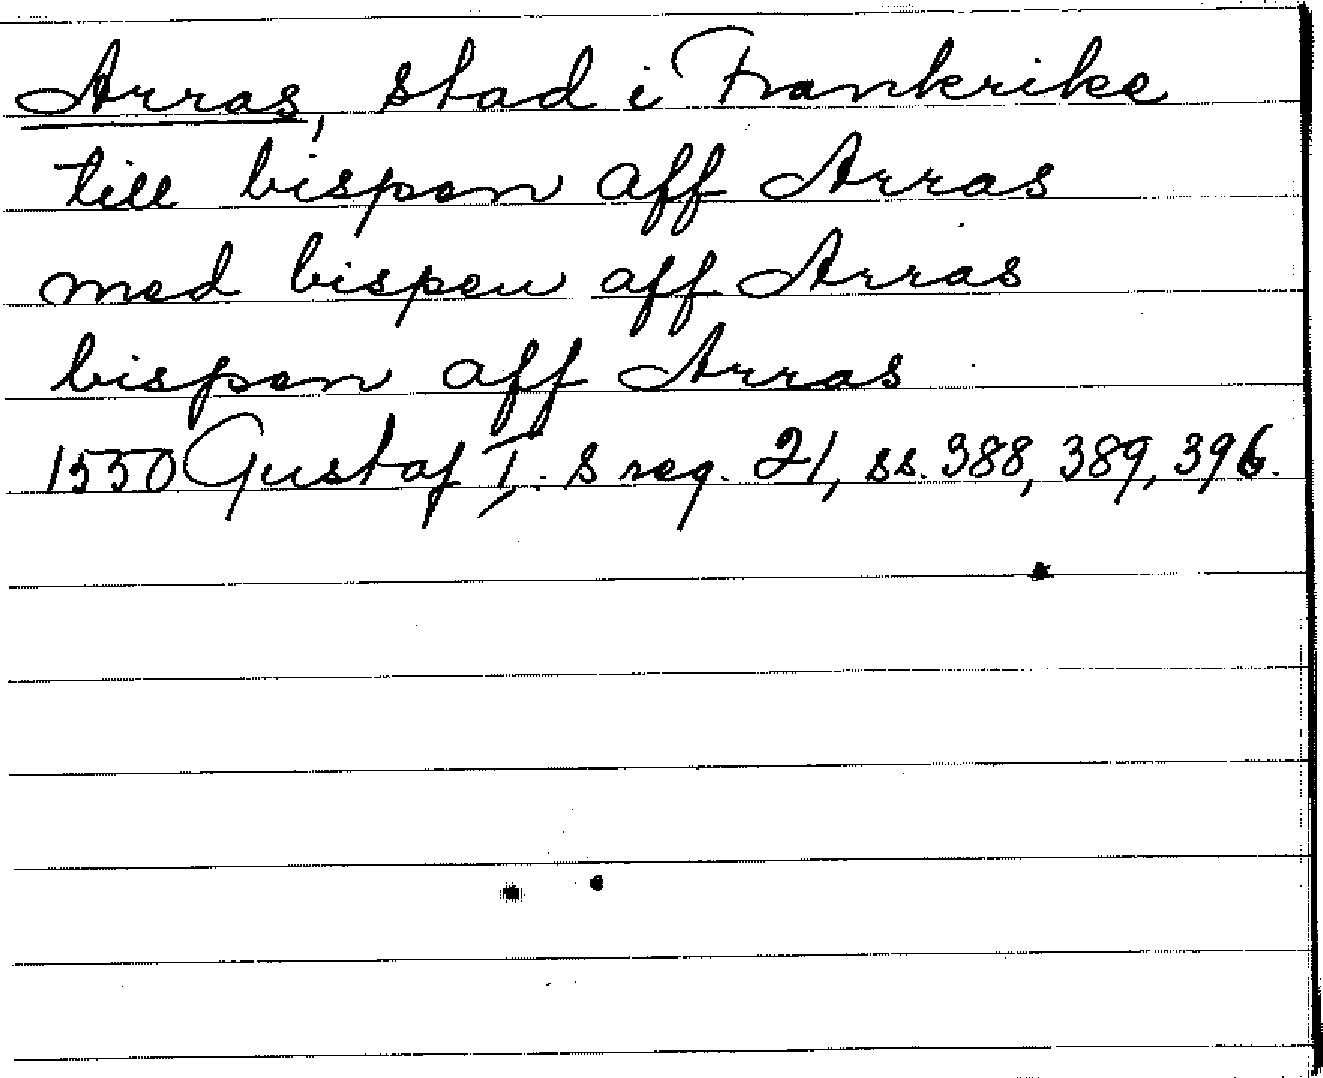 Arras, stad i Frankrike
till bispen aff Arras
med bispen aff Arras
bispen aff Arras
1550 Gustaf I:s reg. 21, ss. 388, 389, 396.